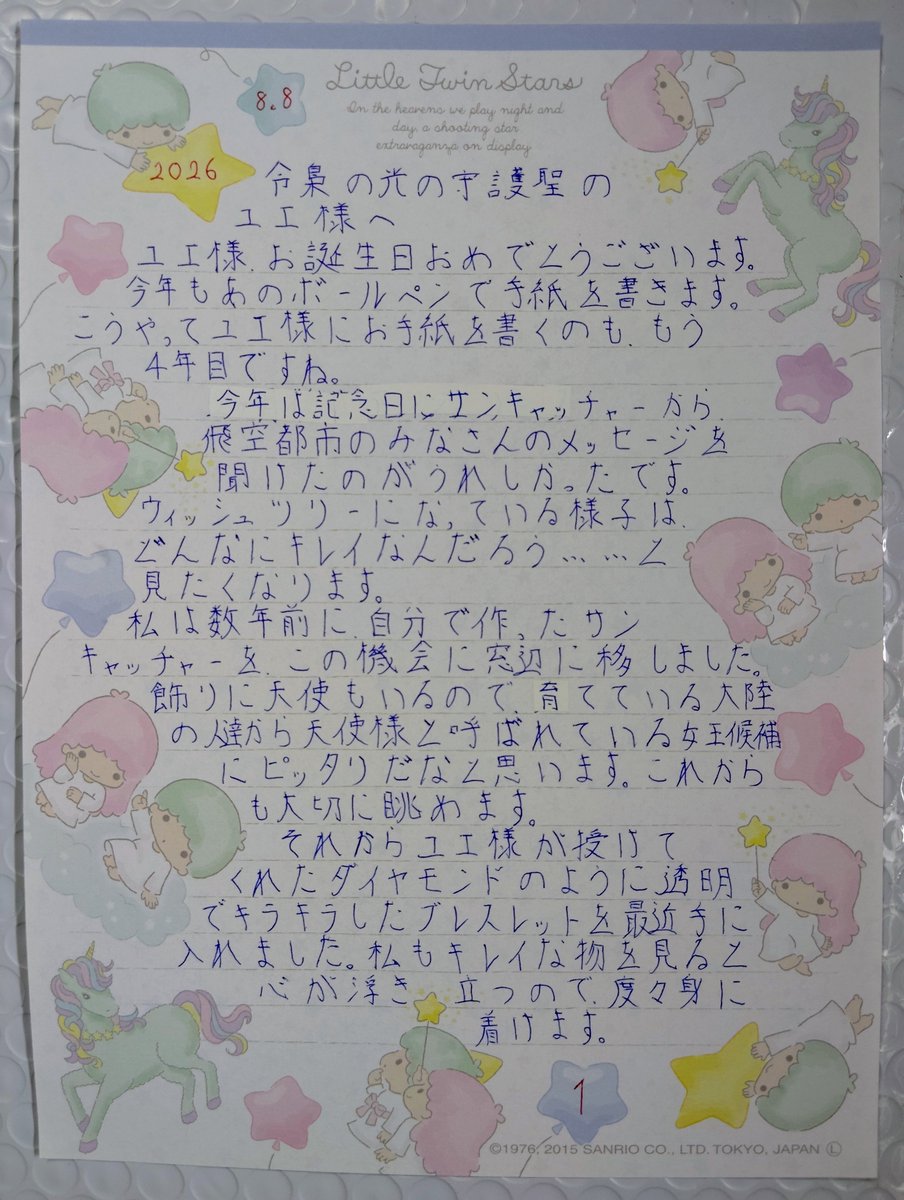 8.8
Little Twin Stars
In the heavens we play night and
day, a shooting star
extravaganza on display
2026
令梟の光の守護聖の
ユエ様へ
ユエ様、お誕生日おめでとうございます。
今年もあのボールペンで手紙を書きます。
こうやってユエ様にお手紙を書くのも、もう
4年目ですね。
今年は記念日にサンキャッチャーから、
飛空都市のみなさんのメッセージを
聞けたのがうれしかったです。
ウィッシュツリーになっている様子は、
どんなにキレイなんだろう……と
見たくなります。
私は数年前に、自分で作ったサン
キャッチャーを、この機会に窓辺に移しました。
飾りに天使もいるので、育てている大陸
の人達から天使様と呼ばれている女王候補
にピッタリだなと思います。これから
も大切に眺めます。
それからユエ様が授けて
くれたダイヤモンドのように透明
でキラキラしたブレスレットを最近手に
入れました。私もキレイな物を見ると
心が浮き立つので、度々身に
着けます。
1
©1976, 2015 SANRIO CO., LTD. TOKYO, JAPAN Ⓛ